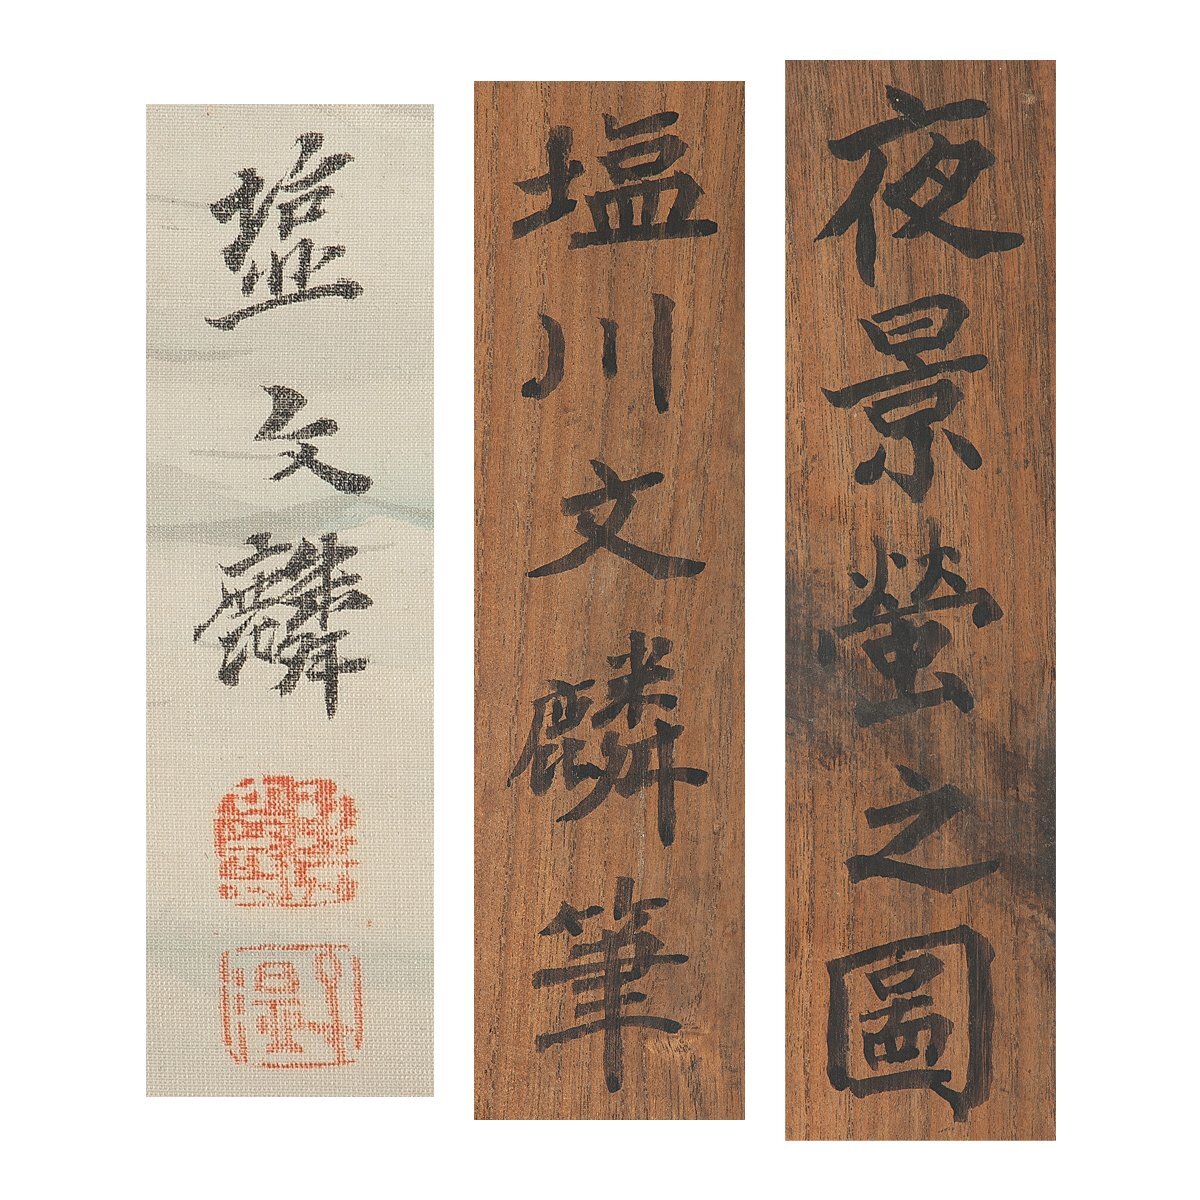 夜景螢之圖
塩川文麟筆
塩文麟